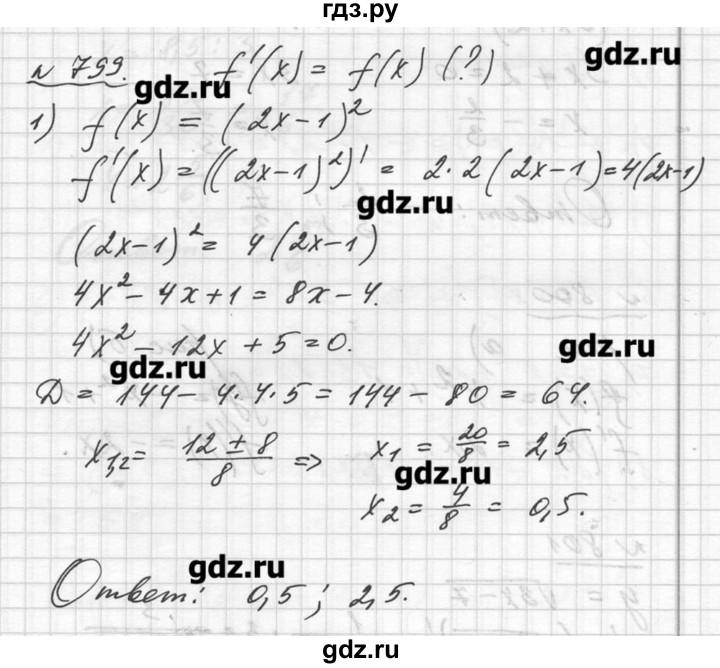 гдз.ру
№ 799. f'(x) = f(x) (?)
gdz.ru
gdz.ru
1) f(x) = (2x-1)²
f'(x) = ((2x-1)²)' = 2·2(2x-1) = 4(2x-1)
gdz.ru
(2x-1)² = 4(2x-1)
4x² - 4x + 1 = 8x - 4.
4x² - 12x + 5 = 0.
gdz.ru
gdz.ru
D = 144 - 4·4·5 = 144 - 80 = 64.
x₁,₂ = (12 ± 8)/8 => x₁ = 20/8 = 2,5
gdz.ru
x₂ = 4/8 = 0,5.
gdz.ru
Ответ: 0,5; 2,5.
gdz.ru